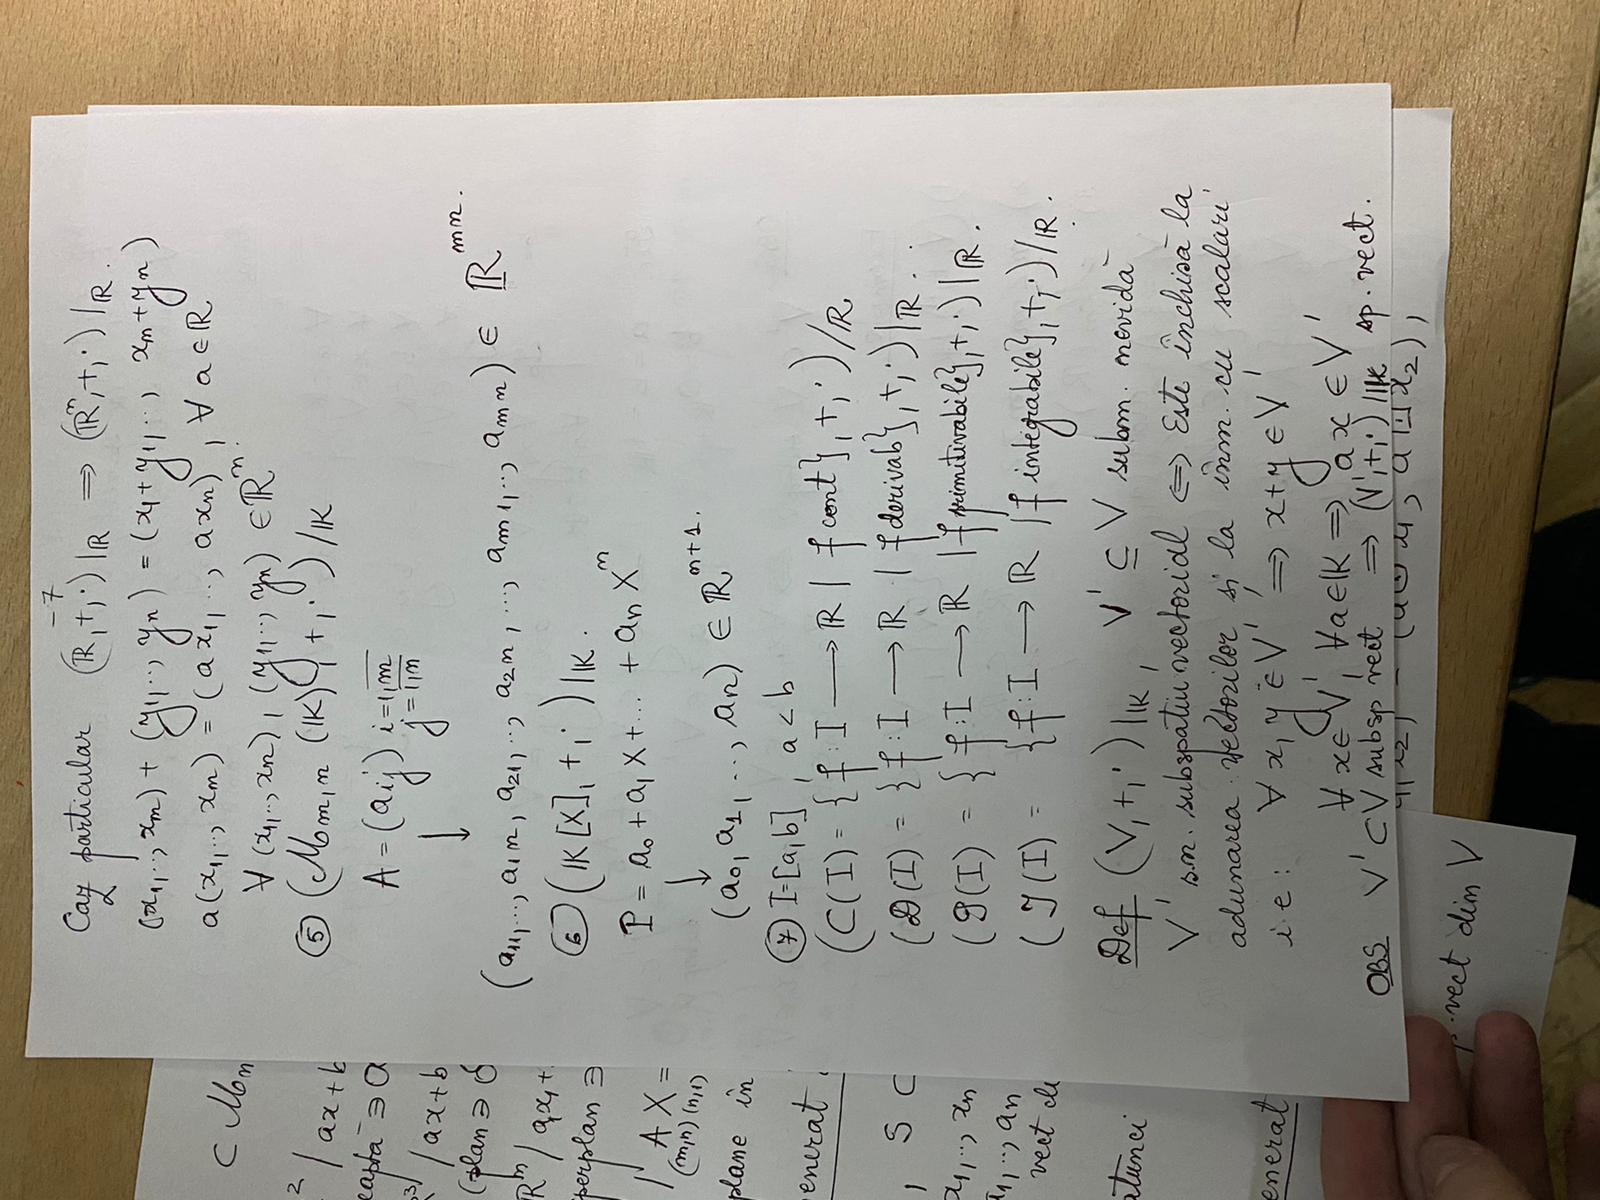 -7-
Caz particular (ℝ,+,·)|ℝ ⟹ (ℝⁿ,+,·)|ℝ.
(x₁,.., xₙ) + (y₁,.., yₙ) = (x₁+y₁,.., xₙ+yₙ)
a(x₁,.., xₙ) = (ax₁,.., axₙ), ∀ a∈ℝ
∀ (x₁,.., xₙ), (y₁,.., yₙ) ∈ℝⁿ.
⑤ (M_{m,n} (𝕂), +,·)/𝕂
A = (a_{ij}) i=1,m̅
j=1,n̅
↓
(a₁₁,..., a₁ₙ, a₂₁,.., a₂ₙ,..., a_{m1},.., a_{mn}) ∈ ℝ^{mn}.
⑥ (𝕂[X], +,·)|𝕂.
P = a₀ + a₁ X+... + aₙ Xⁿ
↓
(a₀, a₁,.., aₙ) ∈ ℝ^{n+1}.
⑦ I=[a,b], a < b
(C(I) = {f: I ⟶ ℝ | f cont}, +,·)/ℝ.
(D(I) = {f: I ⟶ ℝ | f derivab}, +,·)|ℝ.
(P(I) = {f: I ⟶ ℝ | f primitivabile}, +,·)|ℝ.
(I(I) = {f: I ⟶ ℝ | f integrabile}, +,·)/ℝ.
Def (V,+,·)|𝕂, V' ⊆ V subm. nevidă
V' s.n. subspatiu vectorial ⟺ Este închisă la
adunarea vectorilor și la înm. cu scalari
i.e: ∀ x, y ∈ V' ⟹ x+y ∈ V'
∀ x∈ V', ∀a∈𝕂 ⟹ ax ∈ V'
OBS V' ⊂ V subsp vect ⟹ (V',+,·)|𝕂 sp. vect.
⊂ M
² / ax+b
∋ O
³ / ax+b
(plan ∋ O
ℝⁿ / a₁x₁+
perplan ∋
/ A X =
(m,n) (n,1)
plane în
enerat
, S ⊂
x₁,.., xₙ
a₁,.., aₙ
vect
atunci
enerat
vect din V